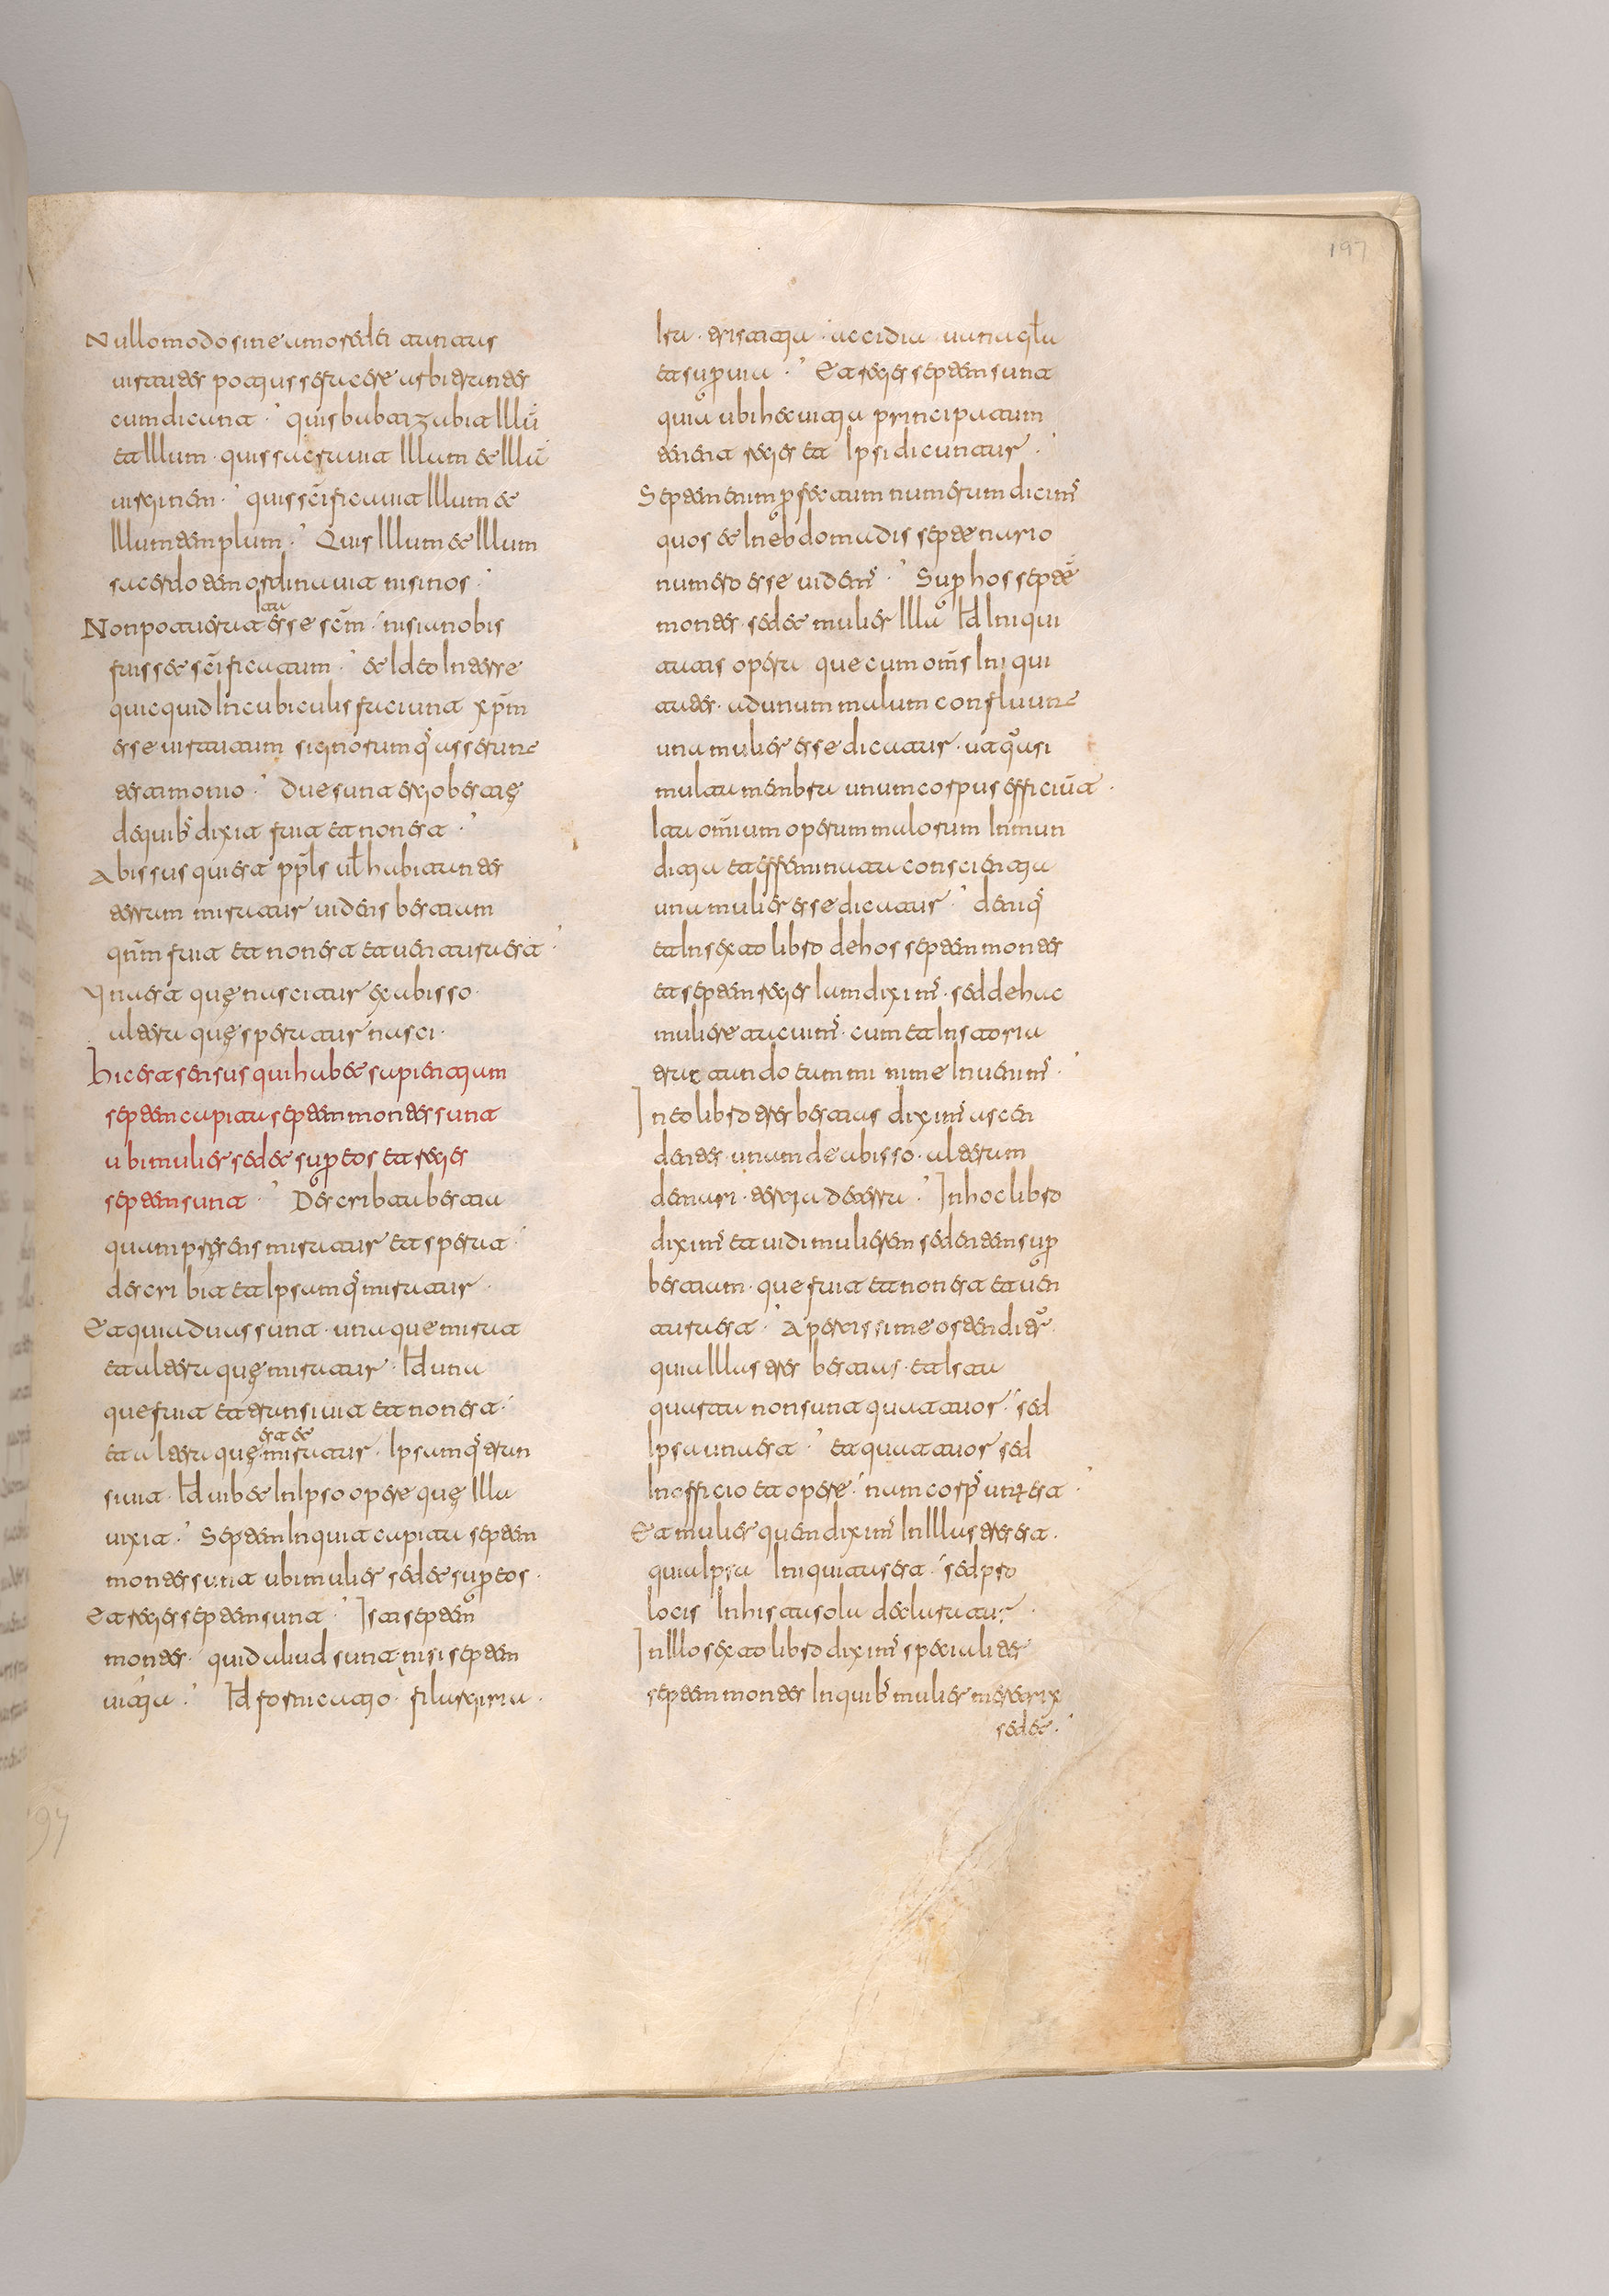 Nullo modo sine amore dei tantas
uirtutes potius se facere arbitrantes
cum dicunt · quis babtizabit illũ
et illum · quis sacrauit illum et illũ
uirginem · quis sc̄ificauit illum et
illum templum · Quis illum et illum
sacerdotem ordinauit nisi nos ·
Non potuerit ita esse sc̄m · nisi a nobis
fuisset sc̄ificatum · et ideo in terre
quicquid in cubiculis faciunt xp̄m
esse uisitatum signorumq' asserunt
testimonio · Due sunt ergo bestię
de quib' dixit fuit et non est ·
Abissus qui est pp̄ls ul̄ habitantes
terram miratur uidens bestiam
qn̄m fuit et non est et uentura est ·
Una est quę nascitur ex abisso ·
altera quę speratur nasci ·
Hic est sensus qui habet sapientiam
septem capita septem montes sunt
ubi mulier sedet sup̱ eos et reges
septem sunt · Describta bestia
quam presens miratur et sperat ·
describit et ipsamq' miratur ·
Et quia duas sunt · una que mirat
et altera quę miratur · Id una
que fuit et transiuit et non est ·
et altera quę est et miratur · ipsamq' tran
siuit · Id uibet in ipso opere quę illa
uixit · Septem inquit capita septem
montes sunt ubi mulier sedet sup̱ eos ·
Et reges septem sunt · Isti septem
montes · quid aliud sunt nisi septem
uitia · Id fornicatio · filargiria ·
Ira · tristitia · accidia · uana gl̄a
et sup̱uia · Et reges septem sunt
quia ubi hec uitia principatum
tenent reges et ipsi dicuntur ·
Septem enim p̱fectum numerum dicim'
quos et in ebdomadis septenario
numero esse uidem' · Sup̱ hos septē
montes · sedet mulier illa Id iniqui
tatis opera que cum om̄s iniqui
tates · ad unum malum confluunt
una mulier esse dicatur · ut quasi
multa menbra unum corpus efficiūt ·
Ita om̄ium operum malorum inmun
ditia et effeminata conscientia
una mulier esse dicatur · deniq'
et in sexto libro de hos septem montes
et septem reges iam dixim' · sed de hac
muliere tacuim' · cum et in storia
tractando eum mi nime inuenim' ·
In eo libro tres bestias dixim' ascen
dentes · unam de abisso · alteram
de mari · tertia de terra · In hoc libro
dixim' et uidi mulierem sedentem sup̱
bestiam · que fuit et non est et uen
tura est · Apertissime ostendit'
quia illas tres bestias · et ista
quarta non sunt quattuor · sed
ipsa una est · et quattuor sed
in officio et opere · nam corp' unum est ·
Et mulier quem dixim' in illas tres est ·
quia ipsa iniquitas est · sed pro
locis in his ta sola declaratur ·
In illo sexto libro dixim' specialiter
septem montes in quib' mulier meretrix
sedet ·
197